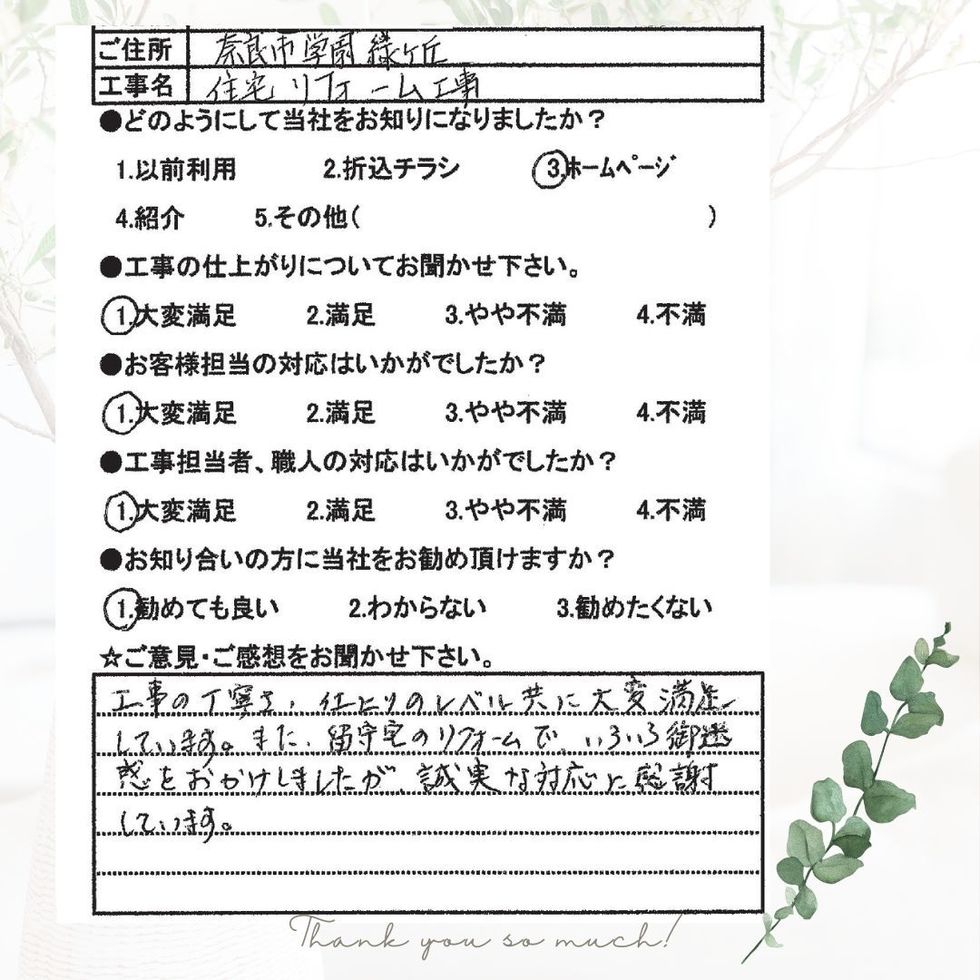 ご住所 奈良市学園緑ケ丘
工事名 住宅リフォーム工事
●どのようにして当社をお知りになりましたか？
1.以前利用 2.折込チラシ 3.ホームページ
4.紹介 5.その他( )
●工事の仕上がりについてお聞かせ下さい。
1.大変満足 2.満足 3.やや不満 4.不満
●お客様担当の対応はいかがでしたか？
1.大変満足 2.満足 3.やや不満 4.不満
●工事担当者、職人の対応はいかがでしたか？
1.大変満足 2.満足 3.やや不満 4.不満
●お知り合いの方に当社をお勧め頂けますか？
1.勧めても良い 2.わからない 3.勧めたくない
☆ご意見・ご感想をお聞かせ下さい。
工事の丁寧さ、仕上りのレベル共に大変満足
しています。また、留守宅のリフォームで、いろいろ御迷
惑をおかけしましたが、誠実な対応に感謝
しています。
Thank you so much!